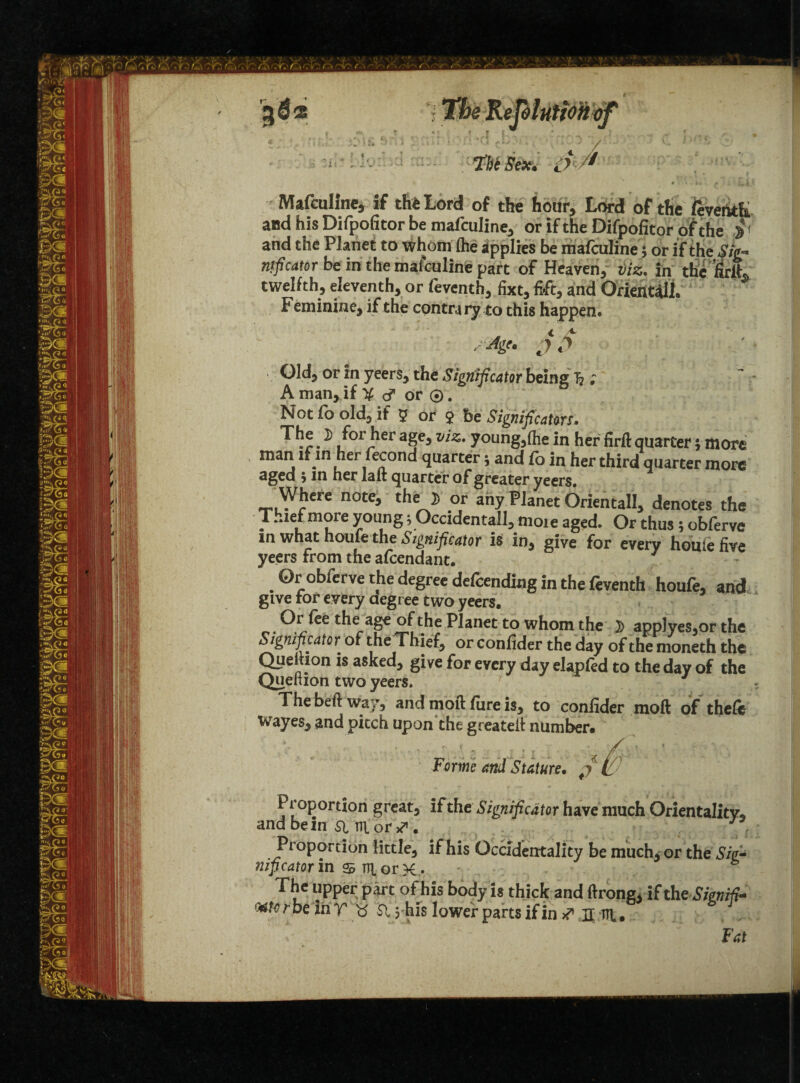 362 The Resolution of
The Sex.
Masculine, if the Lord of the hour, Lord of the seventh
and his Dispositor be masculine, or if the Dispositor of the ☽
and the Planet to whom she applies be masculine; or if the Sig-
nificator be in the masculine part of Heaven, viz. in the first,
twelfth, eleventh, or seventh, sixt, fift, and Orientall.
Feminine, if the contrary to this happen.
Age.
Old, or in yeers, the Significator being ♄;
A man, if ♃ ♂ or ☉.
Not so old, if ☿ or ♀ be Significators.
The ☽ for her age, viz. young, she in her first quarter; more
man if in her second quarter; and so in her third quarter more
aged; in her last quarter of greater yeers.
Where note, the ☽ or any Planet Orientall, denotes the
Thief more young; Occidentall, more aged. Or thus; observe
in what house the Significator is in, give for every house five
yeers from the ascendant.
Or observe the degree descending in the seventh house, and
give for every degree two yeers.
Or see the age of the Planet to whom the ☽ applyes, or the
Significator of the Thief, or consider the day of the moneth the
Question is asked, give for every day elapsed to the day of the
Question two yeers.
The best way, and most sure is, to consider most of these
wayes, and pitch upon the greatest number.
Forme and Stature.
Proportion great, if the Significator have much Orientality,
and be in ♌ ♏ or ♐.
Proportion little, if his Occidentality be much, or the Sig-
nificator in ♋ ♑ or ♓.
The upper part of his body is thick and strong, if the Signifi-
cator be in ♈ ♉ ♌; his lower parts if in ♐ ♊ ♏.
Fat